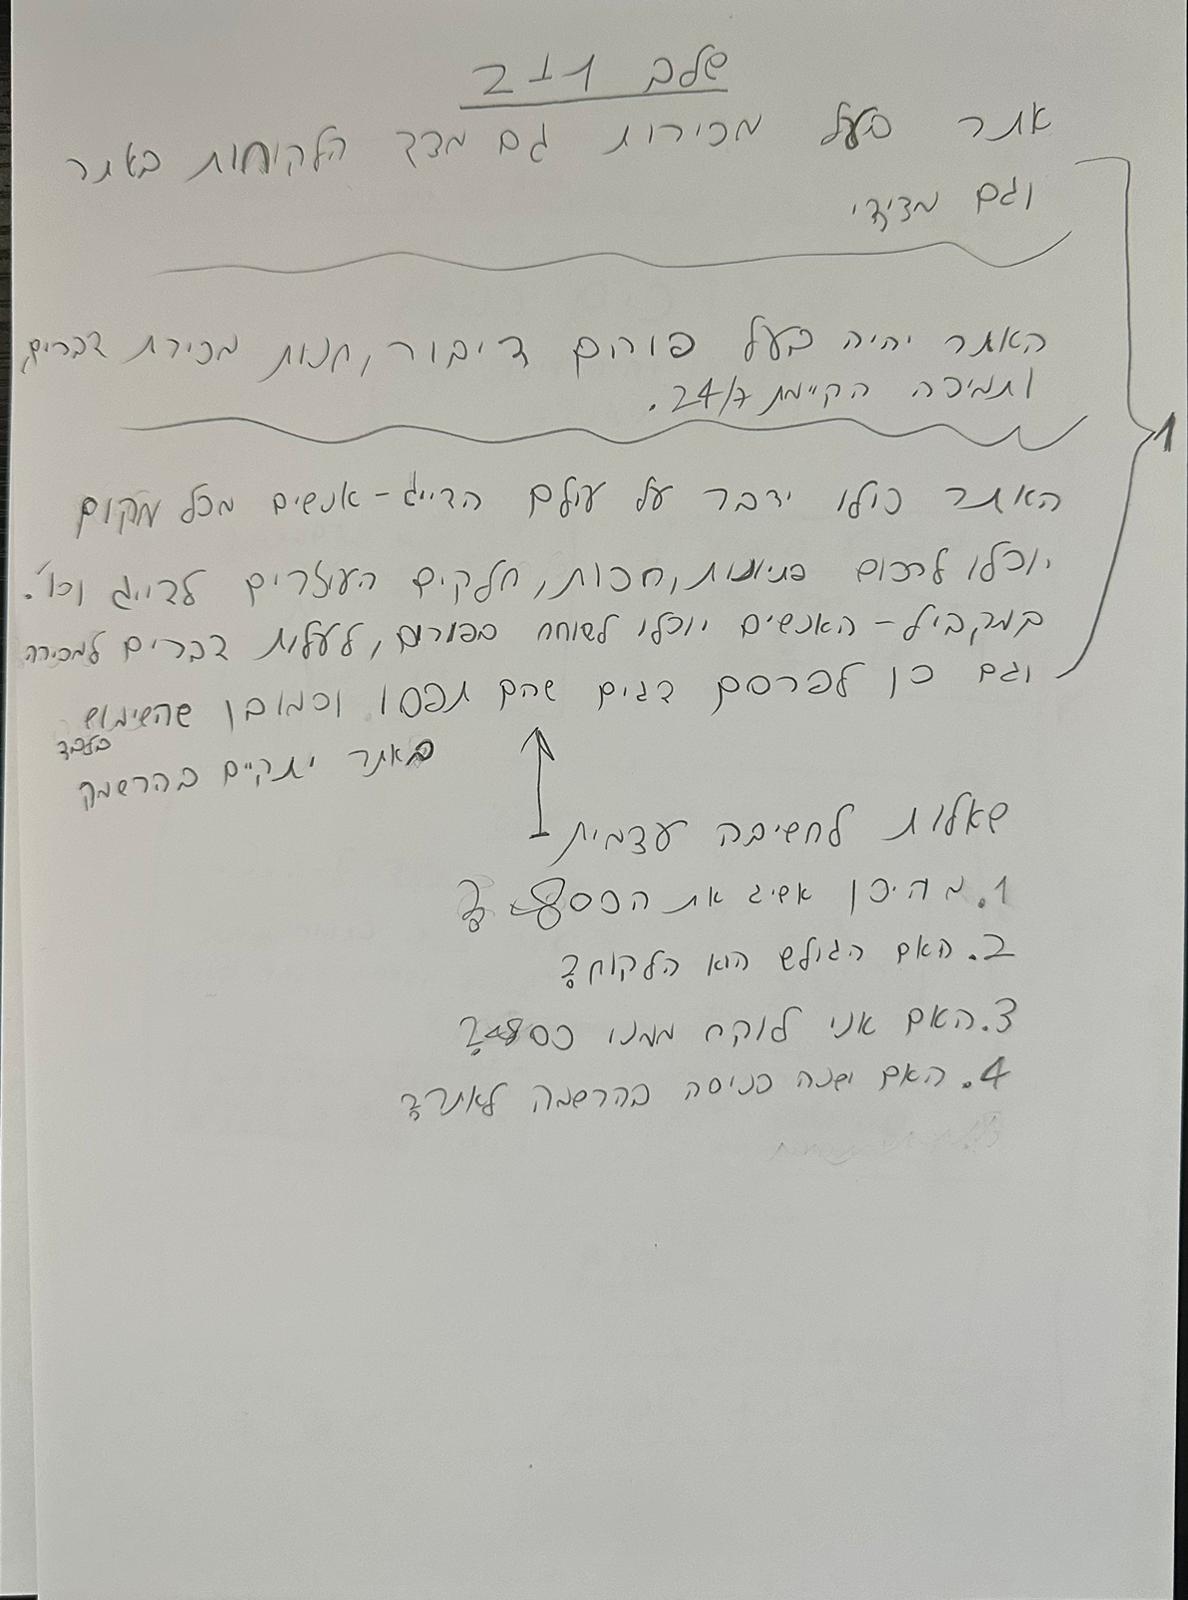 שלב 1+2
אתר בעל מכירות גם מצד הלקוחות באתר
וגם מצידי
האתר יהיה בעל פורום דיבור, חנות מכירת דברים
ותמיכה הקיימת 24/7.
1
האתר כולו ידבר על עולם הדייג - אנשים מכל מקום
יוכלו לרכוש פתיונות, חכות, חלקים העוזרים לדייג וכו'.
במקביל - האנשים יוכלו לשוחח בפורום, לעלות דברים למכירה
וגם כן לפרסם דגים שהם תפסו וכמובן שהשימוש
באתר יתקיים בהרשמה בלבד
שאלות לחשיבה עצמית
1. מהיכן אשיג את הכסף?
2. האם הגולש הוא הלקוח?
3. האם אני לוקח ממנו כסף?
4. האם ישנה כניסה בהרשמה לאתר?